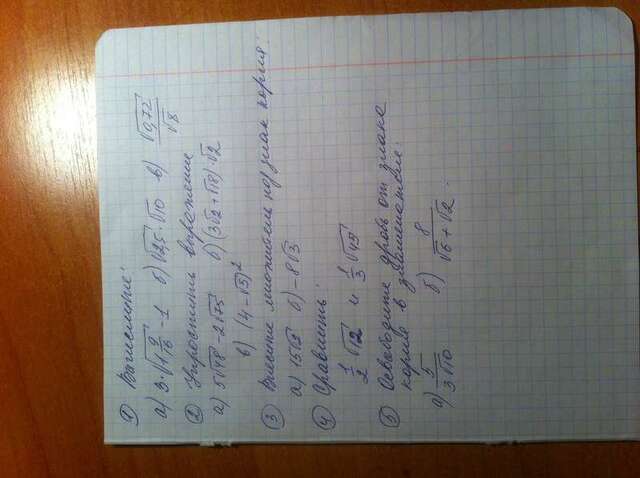 ① Вычислите:
а) 3·√(1 9/16) - 1 б) √25·√10 в) √0,72/√8
② Упростить выражение
а) 5√48 - 2√75 б) (3√2 + √18)·√2
в) (4 - √3)²
③ Внесите множитель под знак корня:
а) б) -8√3
④ Сравнить:
1/2 √12 и 1/3
⑤ Освободите дробь от знака
корня в знаменателе.
а) 5/(3√10) б) 8/(√6 + √2).